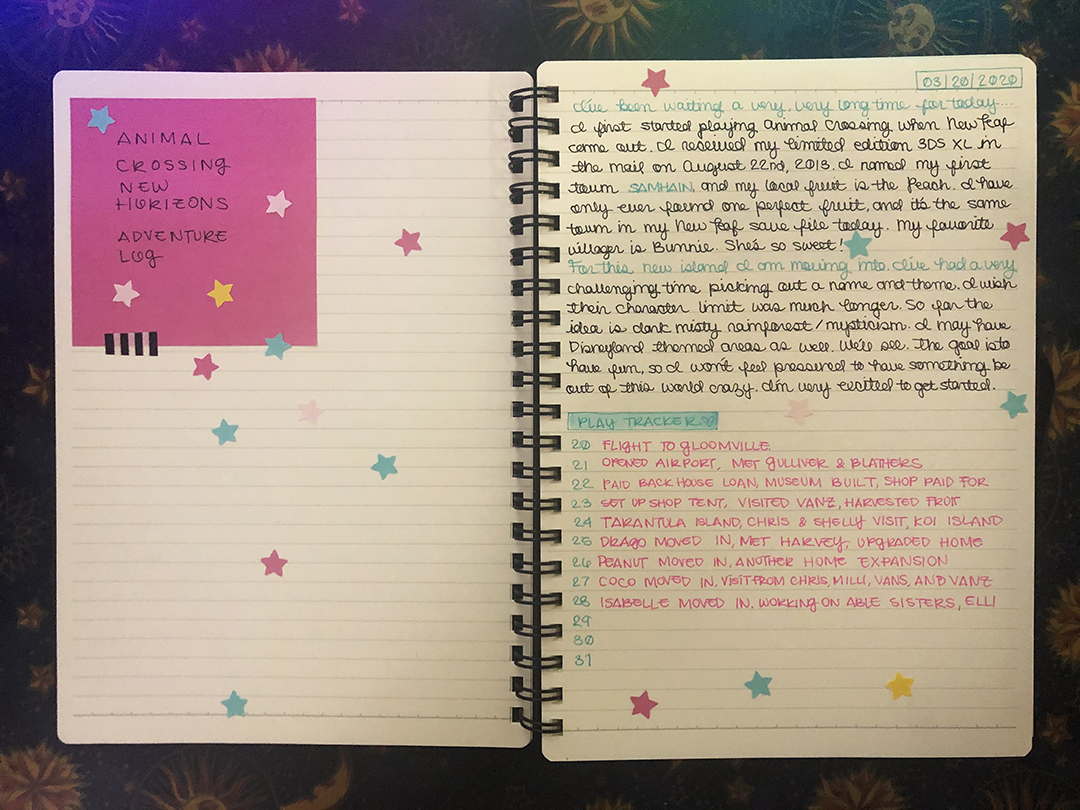 ANIMAL
CROSSING
NEW
HORIZONS
ADVENTURE
LOG
03/20/2020
I've been waiting a very, very long time for today...
I first started playing Animal Crossing when New Leaf
came out. I received my limited edition 3DS XL in
the mail on August 22nd, 2013. I named my first
town SAMHAIN, and my local fruit is the Peach. I have
only ever found one perfect fruit, and it's the same
town in my New Leaf save file today. My favorite
villager is Bunnie. She's so sweet!
For this new island I am moving into. I've had a very
challenging time picking out a name and theme. I wish
their character limit was much longer. So far the
idea is dark misty rainforest/mysticism. I may have
Disneyland themed areas as well. We'll see. The goal is to
have fun, so I won't feel pressured to have something be
out of this world crazy. I'm very excited to get started.
PLAY TRACKER
20 FLIGHT TO GLOOMVILLE
21 OPENED AIRPORT, MET GULLIVER & BLATHERS
22 PAID BACK HOUSE LOAN, MUSEUM BUILT, SHOP PAID FOR
23 SET UP SHOP TENT, VISITED VANZ, HARVESTED FRUIT
24 TARANTULA ISLAND, CHRIS & SHELLY VISIT, KOI ISLAND
25 DRAGO MOVED IN, MET HARVEY, UPGRADED HOME
26 PEANUT MOVED IN, ANOTHER HOME EXPANSION
27 COCO MOVED IN, VISIT FROM CHRIS, MILLI, VANS, AND VANZ
28 ISABELLE MOVED IN. WORKING ON ABLE SISTERS, ELLI
29
30
31